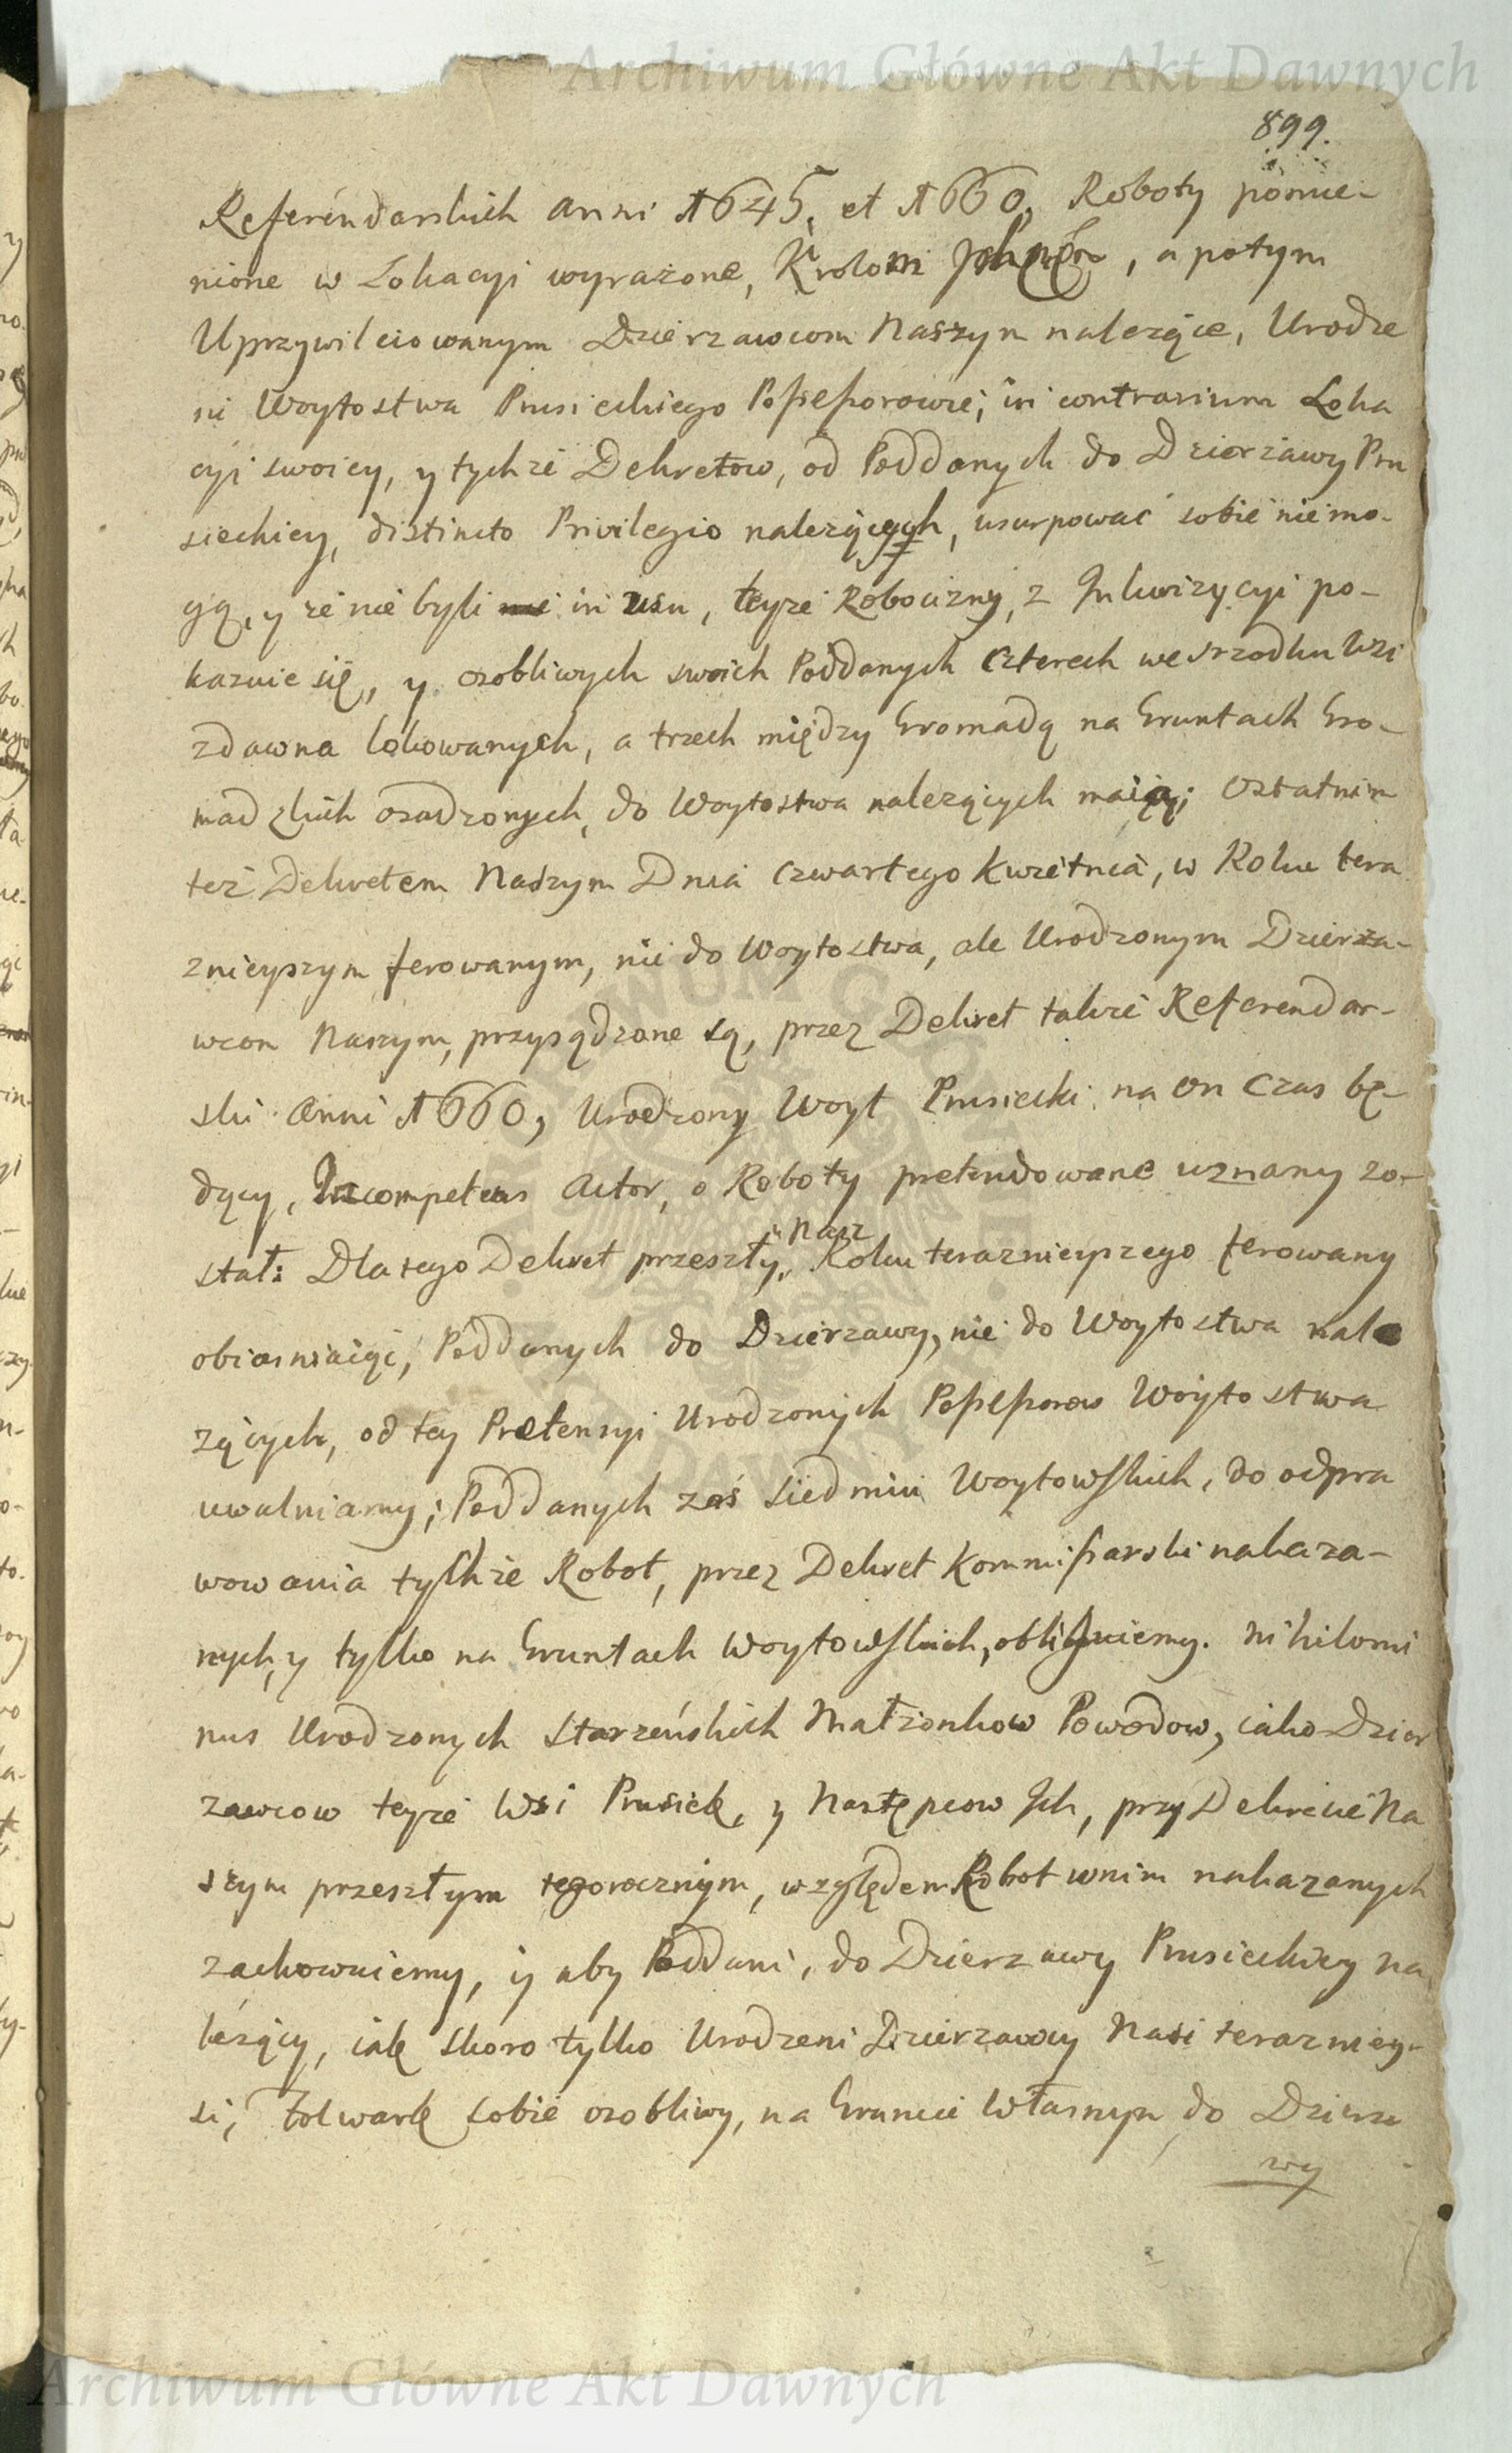 Archiwum Główne Akt Dawnych
899.
Referendarskich anni 1645, et 1660, Roboty pomie-
nione w Lokacyi wyrażone, Krolom , a potym
Uprzywileiowanym Dzierzawcom Naszym nalezące, Urodze
ni Woytostwa Prusieckiego Possessorowie, in contrarium Loka
cyi swoiey, y tychże Dekretow, od Poddanych do Dzierżawy Pru
sieckiey, distincto Privilegio nalezących, usurpować sobie niemo-
gą, y że nie byli in usu, teyże Robocizny, z Inkwizycyi po-
kazuie się, y osobliwych swoich Poddanych czterech we srzodku Wsi
zdawna lokowanych, a trzech między Gromadą na Gruntach Gro-
madzkich osadzonych, do Woytostwa nalezących maią; Ostatnim
też Dekretem Naszym Dnia Czwartego Kwietnia, w Roku tera
znieyszym ferowanym, nie do Woytostwa, ale Urodzonym Dzierza-
wcom Naszym, przysądzone są, przez Dekret także Referendar-
ski Anni 1660, Urodzony Woyt Prusiecki na on czas bę-
dący, Incompetens Actor, o Roboty pretendowane uznany zo-
stał: Dlatego Dekret przeszły Nasz Roku teraznieyszego ferowany
obiasniaiąc, Poddanych do Dzierzawy, nie do Woytostwa nale
zących, od tey Pretensyi Urodzonych Possessorow Woytostwa
uwalniamy; Poddanych zaś siedmiu Woytowskich, do odpra
wowania tychże Robot, przez Dekret Kommissarski nakaza-
nych, y tylko na Gruntach Woytowskich, obliguiemy. Nihilomi
nus Urodzonych Starzeńskich Małżonkow Powodow, iako Dzier
zawcow teyże Wsi Prusiek, y Następcow Ich, przy Dekrecie Na
szym przeszłym tegorocznym, względem Robot wnim nakazanych
zachowuiemy, y aby Poddani, do Dzierzawy Prusieckiey na
leżący, iak skoro tylko Urodzeni Dzierzawcy Nasi terazniey-
si, Folwark sobie osobliwy, na Gruncie Własnym do Dzierza
wy
Archiwum Główne Akt Dawnych